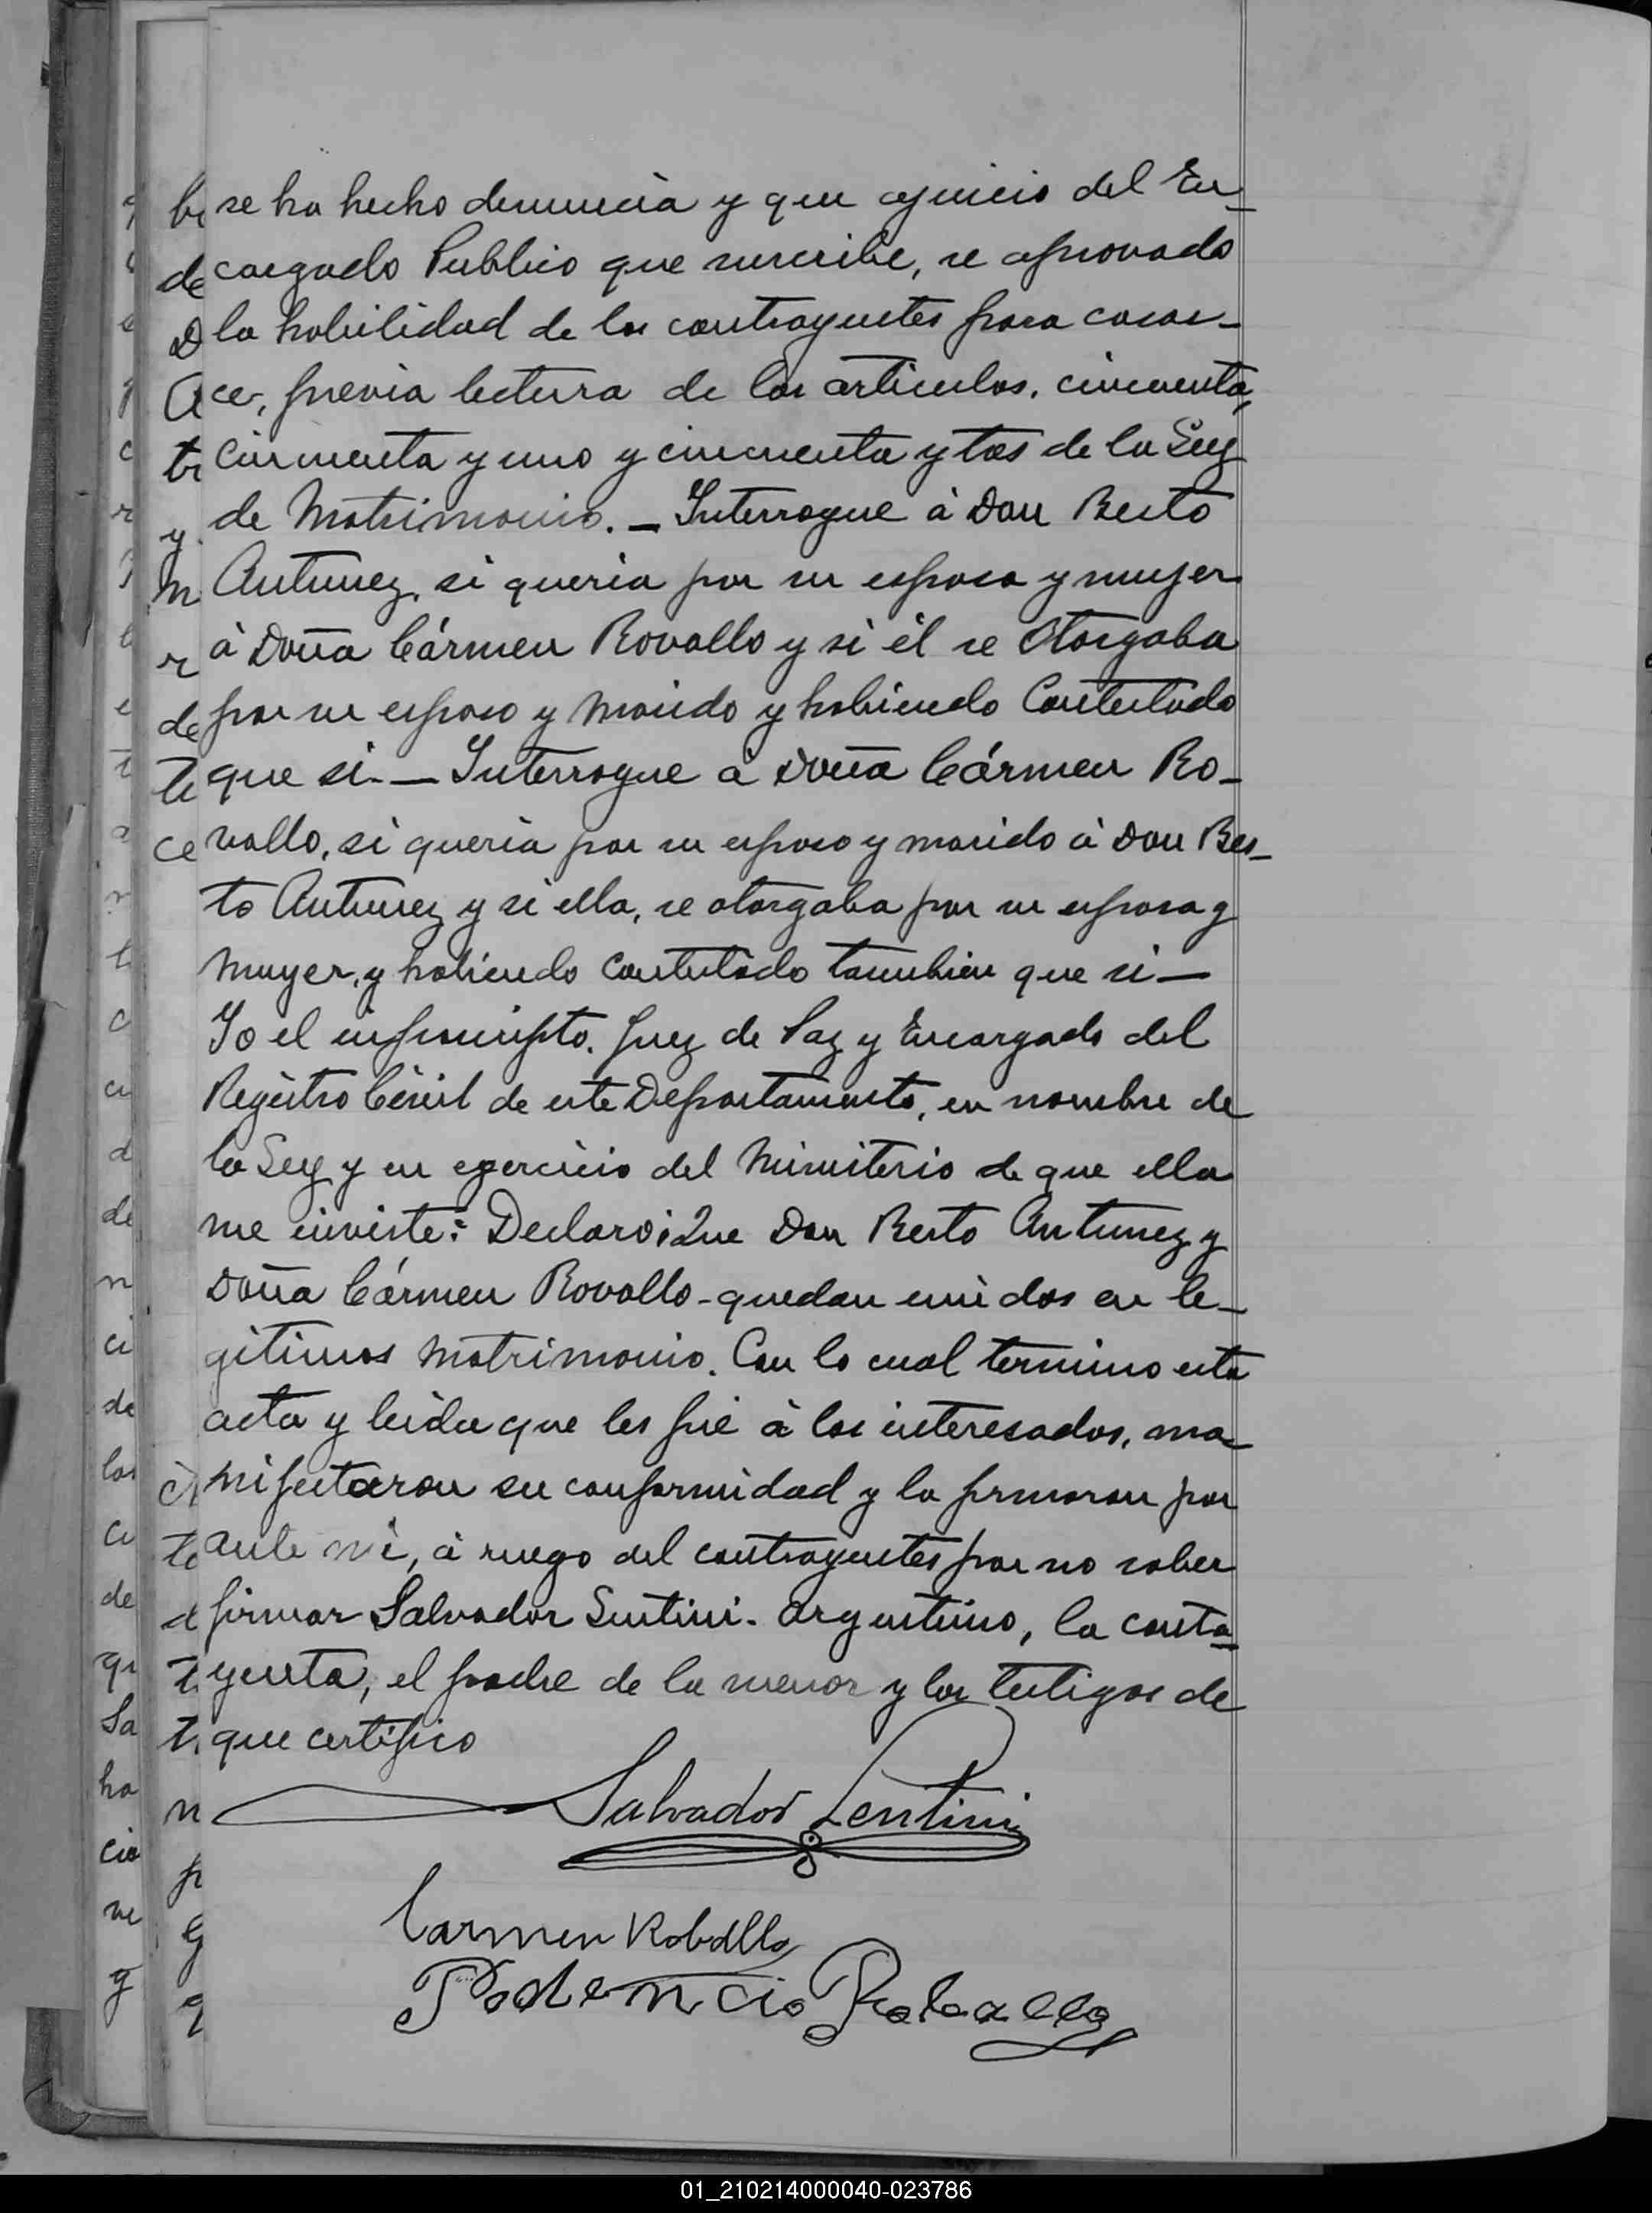 se ha hecho denuncia y que ajuicio del En-
cargado Publico que suscribe, se aprovado
la habilidad de los contrayentes para casar-
ce, previa lectura de los articulos, cincuenta,
cincuenta y uno y cincuenta y tos de la Ley
de Matrimonio. — Interrogue à Don Besto
Antunez, si queria por su esposa y muyer
à Doña Cármen Rovallo y si él se otorgaba
por su esposo y marido y habiendo Contestado
que si. — Interrogue à Doña Cármen Ro-
vallo, si queria por su esposo y marido à Don Bes-
to Antunez y si ella, se otorgaba por su esposa y
muyer, y habiendo contestado tambien que si —
Yo el infrascripto. Juez de Paz y Encargado del
Registro Civil de este Departamento, en nombre de
la Ley y en egercicio del Ministerio de que ella
me enviste: Declaro: Que Don Besto Antunez y
Doña Cármen Rovallo - quedan unidos en le-
gitimos matrimonio. Con lo cual termino esta
acta y leida que les fué à los interesados, ma-
nifestaron su conformidad y la firmaron por
ante mi, à ruego del contrayentes por no saber
firmar Salvador Sentini. argentino, la conta-
yenta, el padre de la menor y los testigos de
que certifico
Salvador Lentini
Carmen Roballo
Roballo
01_210214000040-023786